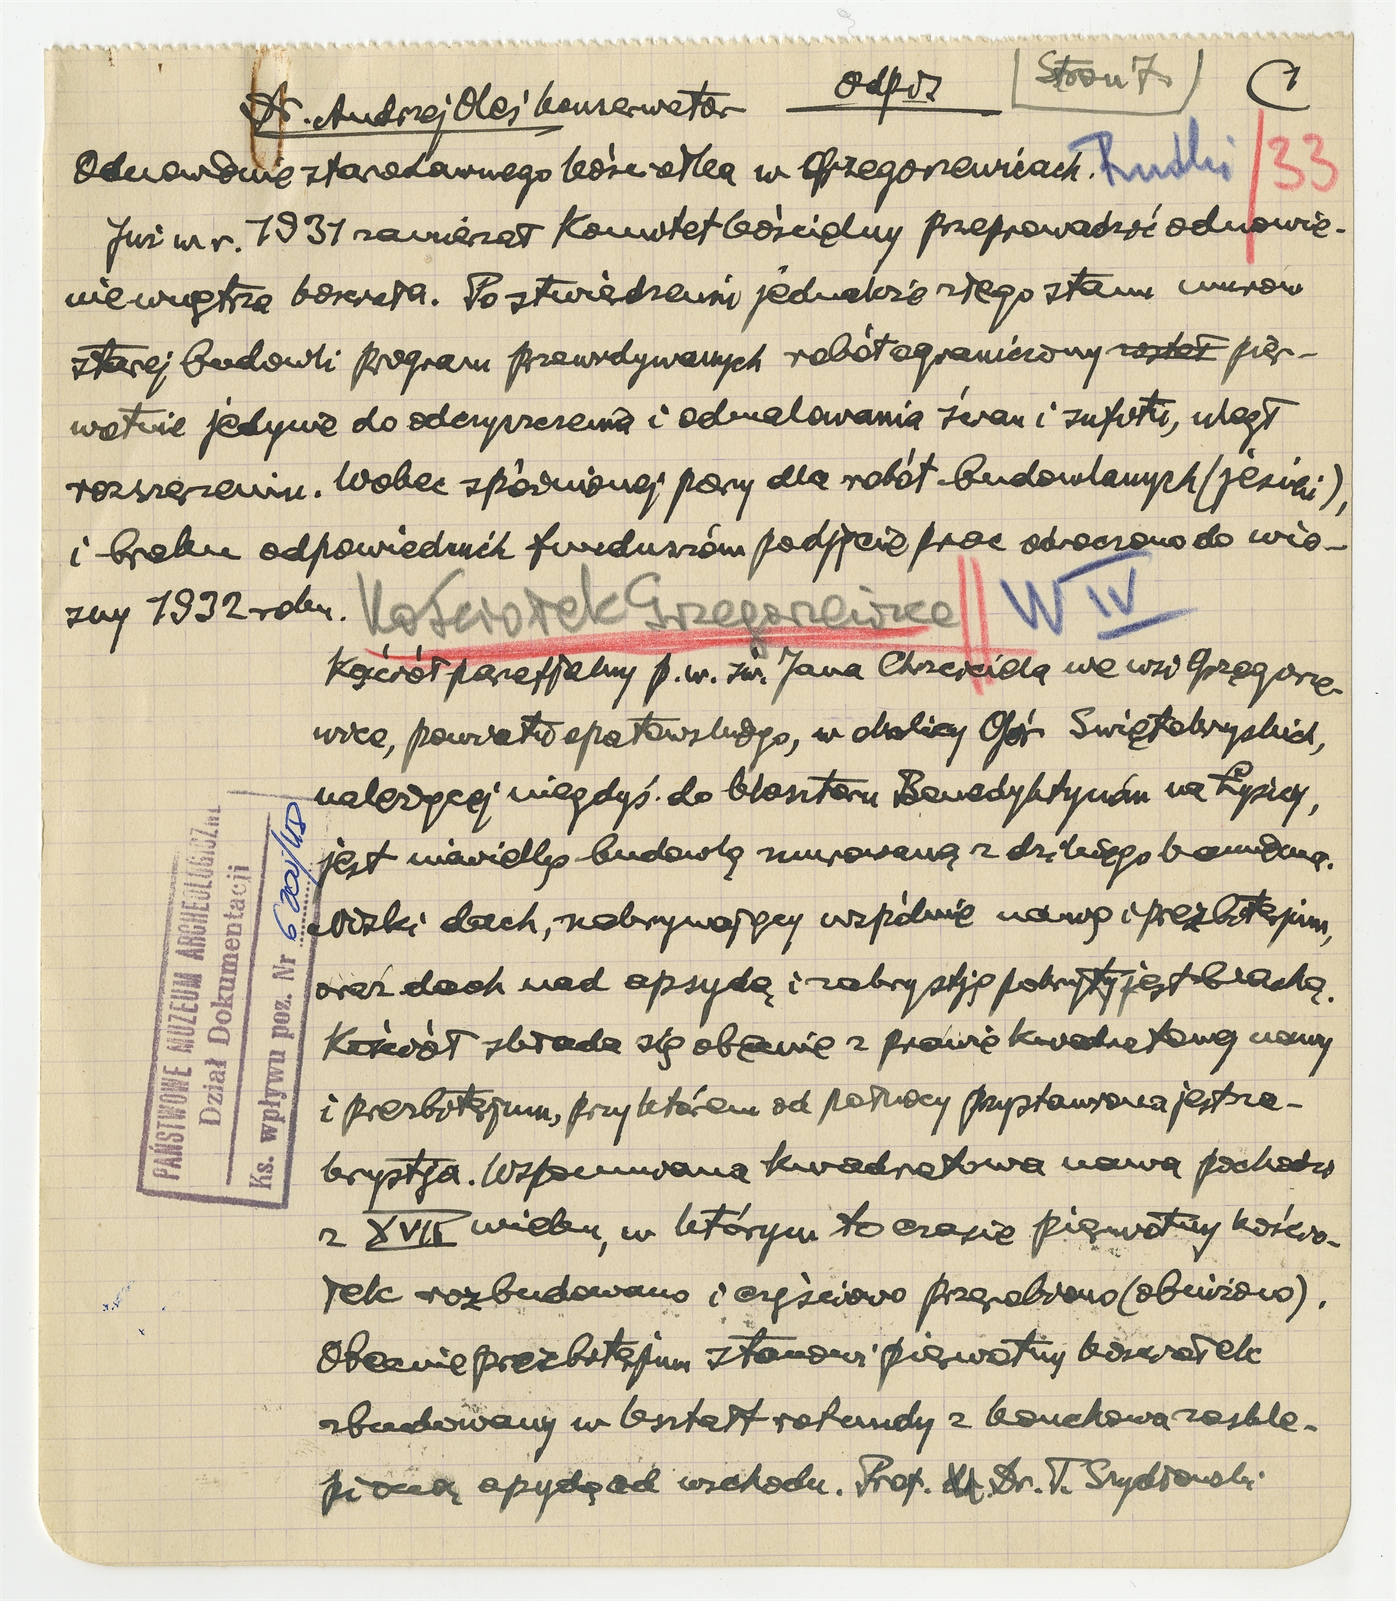 Dr. Andrzej Oleś konserwator odpis [Stron 7] 1
Odnowienie starodawnego kościółka w Grzegorzewicach. Rudki /33
Już w r. 1931 zamierzał Komitet kościelny przeprowadzić odnowie-
nie wnętrza kościoła. Po stwierdzeniu jednakże złego stanu murów
starej budowli program przewidywanych robót ograniczony został pier-
wotnie jedynie do oczyszczenia i odmalowania ścian i sufitu, uległ
rozszerzeniu. Wobec spóźnionej pory dla robót budowlanych (jesień),
i braku odpowiednich funduszów podjęcie prac odroczono do wio-
sny 1932 roku. Kościołek Grzegorzewice || W IV
Kościół parafjalny p.w. św. Jana Chrzciciela we wsi Grzegorze-
wice, powiatu opatowskiego, w okolicy Gór Świętokrzyskich,
należącej niegdyś do klasztoru Benedyktynów na Łyścu,
jest niewielką budowlą murowaną z dzikiego kamienia.
Niski dach, nakrywający wspólnie nawę i prezbiterjum,
oraz dach nad apsydą i zakrystją pokryty jest blachą.
Kościół składa się obecnie z prawie kwadratowej nawy
i prezbiterjum, przy którem od północy przystawiona jest za-
krystja. Wspomniana kwadratowa nawa pochodzi
z XVII wieku, w którym to czasie pierwotny kośció-
łek rozbudowano i częściowo przerobiono (obniżono).
Obecnie prezbiterjum stanowi pierwotny kościołek
zbudowany w kształt rotundy z konchową zaskle-
pioną apsydą od wschodu. Prof. Dr. T. Szydłowski
PAŃSTWOWE MUZEUM ARCHEOLOGICZNE
Dział Dokumentacji
Ks. wpływu poz. Nr